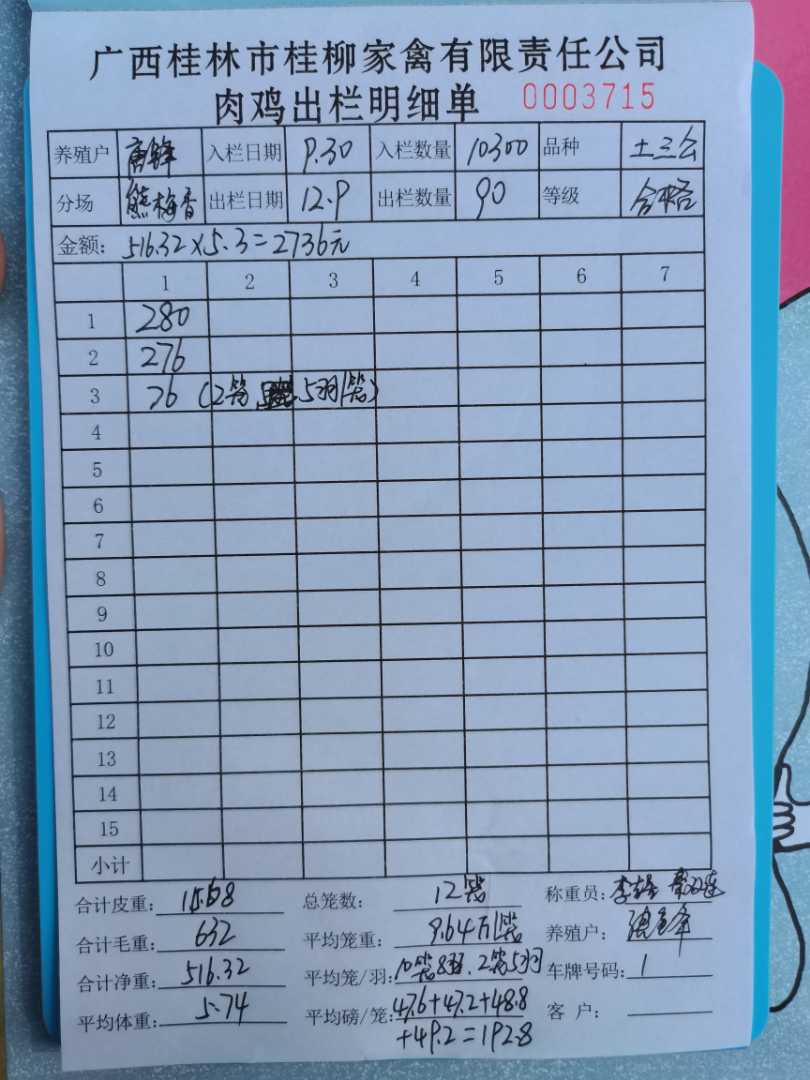 广西桂林市桂柳家禽有限责任公司
肉鸡出栏明细单 0003715
养殖户 唐锋 入栏日期 9.30 入栏数量 10300 品种 土三公
分场 熊梅香 出栏日期 12.9 出栏数量 90 等级 合格
金额: 516.32×5.3=2736元
1 2 3 4 5 6 7
1 280
2 276
3 76 (2笼 5羽/笼)
4
5
6
7
8
9
10
11
12
13
14
15
小计
合计皮重: 115.68 总笼数: 12笼 称重员:
合计毛重: 632 平均笼重: 9.64斤/笼 养殖户:
合计净重: 516.32 平均笼/羽: 10笼8羽.2笼5羽 车牌号码: 1
平均体重: 5.74 平均磅/笼: 47.6+47.2+48.8 客户:
+49.2=192.8